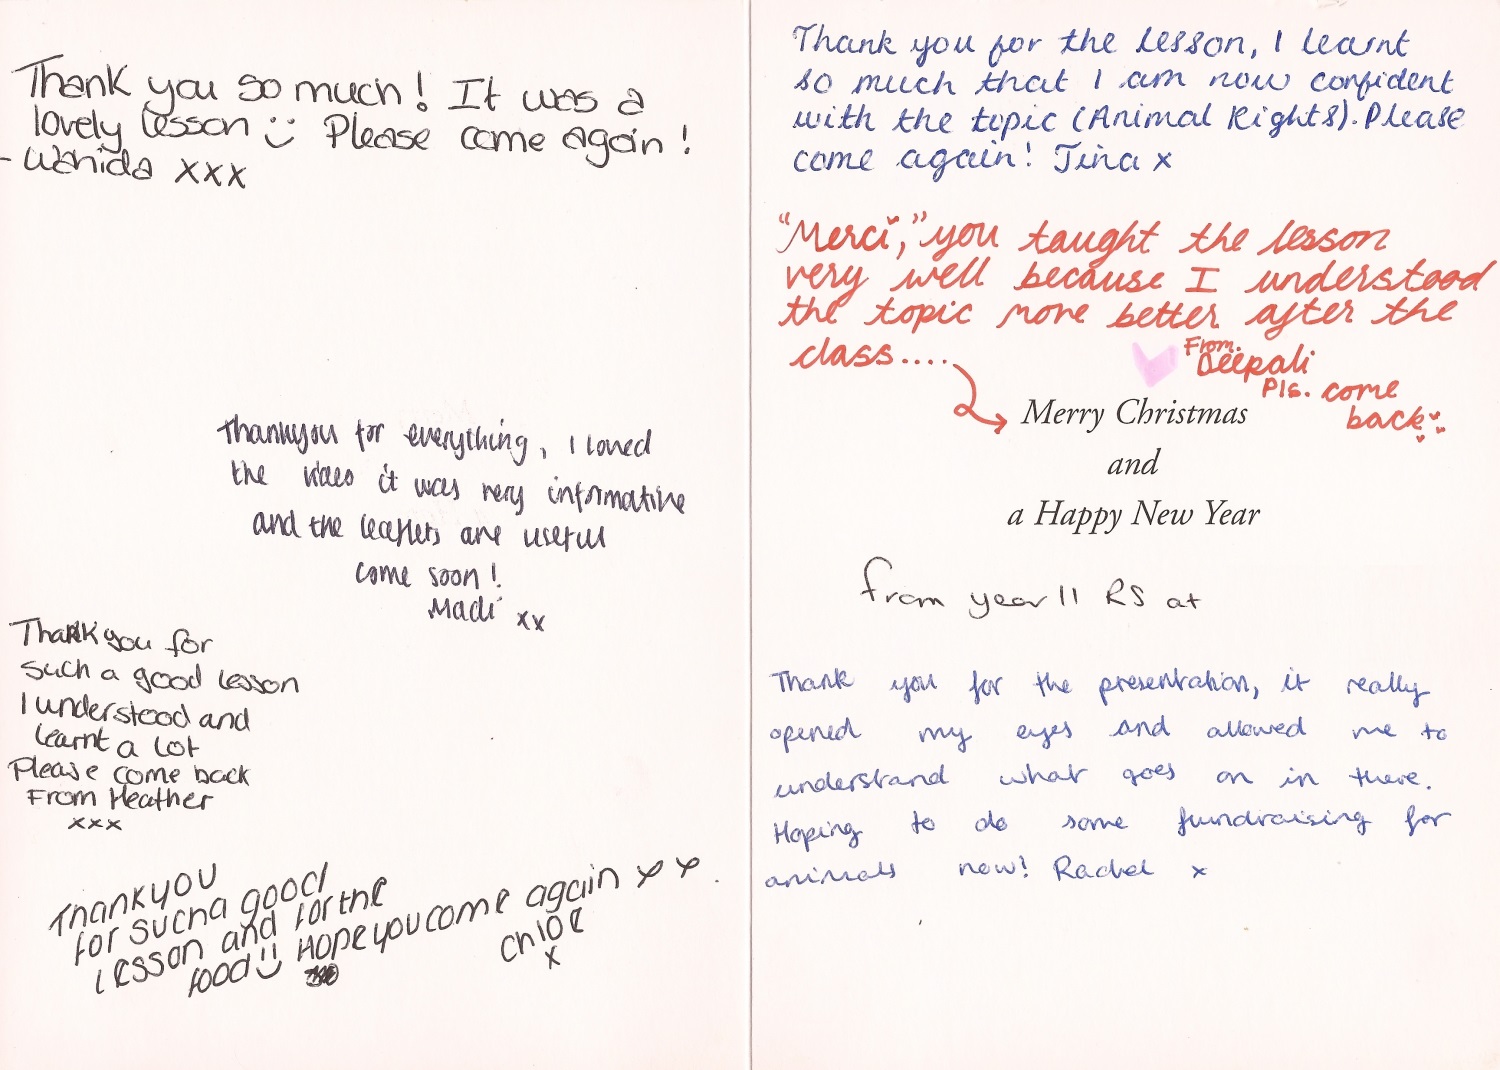 Thank you so much! It was a
lovely lesson :) Please come again!
- Wahida xxx
Thankyou for everything, I loved
the video it was very informative
and the leaflets are useful
come soon!
Madi xx
Thank you for
such a good lesson
I understood and
learnt a lot
Please come back
From Heather
xxx
Thank you
for such a good
lesson and for the
food :) Hope you come again x x
Chloe
x
Thank you for the lesson, I learnt
so much that I am now confident
with the topic (Animal Rights). Please
come again! Tina x
"Merci," you taught the lesson
very well because I understood
the topic more better after the
class....
From.
Deepali
Pls. come
back
Merry Christmas
and
a Happy New Year
from year 11 RS at
Thank you for the presentation, it really
opened my eyes and allowed me to
understand what goes on in there.
Hoping to do some fundraising for
animals now! Rachel x